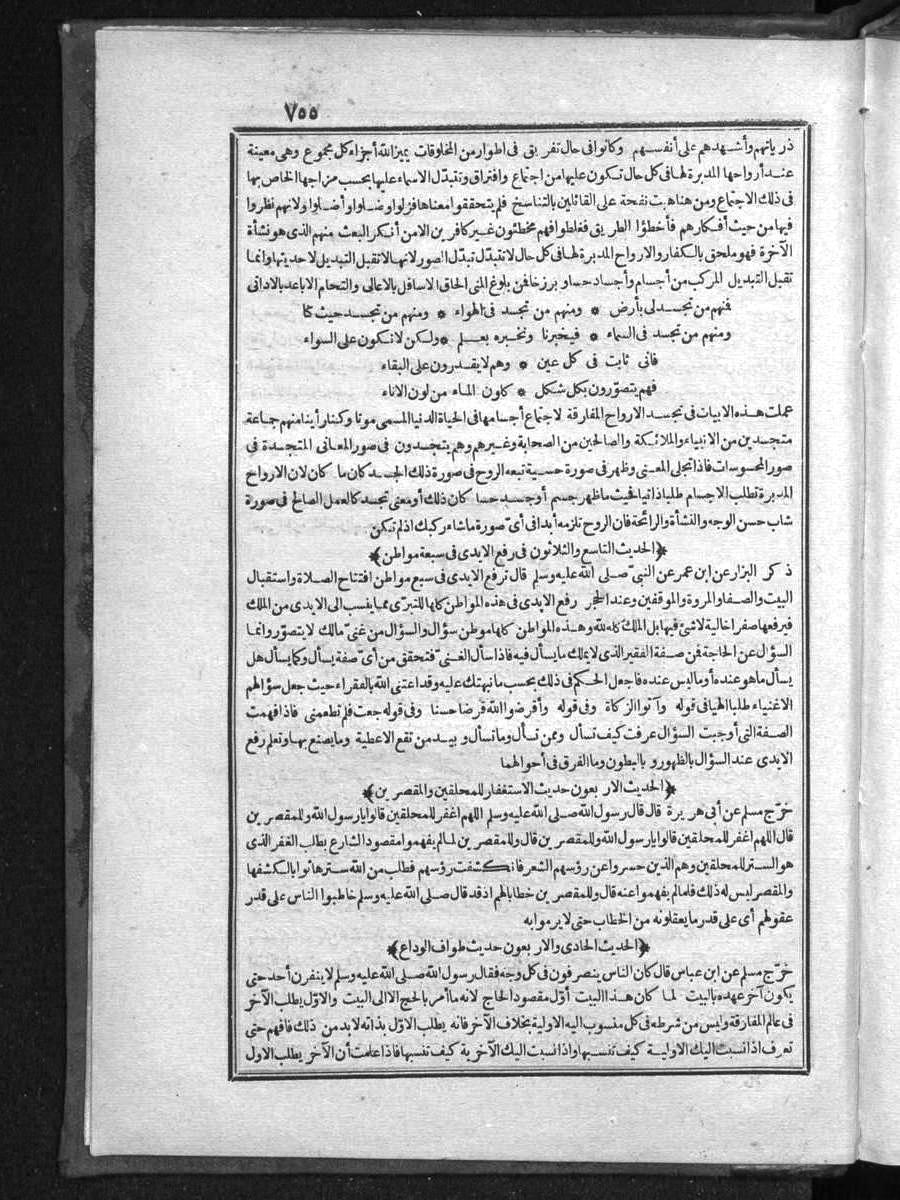 ٧٥٥
ذرياتهم وأشهدهم على أنفسهم وكانوا في حال تفريق في أطوار من المخلوقات يميز الله أجزاء كل مجموع وهي معينة
عند أرواحها المدبرة لها في كل حال تكون عليها من اجتماع وافتراق وتتبدّل الاسماء عليها بحسب مزاجها الخاص بها
في ذلك الاجتماع ومن هنا هبت نفحة على القائلين بالتناسخ فلم يتحققوا معناها فزلوا وضلوا وأضلوا ولانهم نظروا
فيها من حيث أفكارهم فأخطؤا الطريق فغلطوا فهم مخطئون غير كافرين الا من أنكر البعث منهم الذي هو نشأة
الآخرة فهو ملحق بالكفار والارواح المدبرة لها في كل حال لا تتبدّل تبدّل الصور لانها لا تقبل التبديل لاحديتها وانما
تقبل التبديل المركب من أجسام وأجساد حسا وبرزخا فمن بلوغ المنى الحاق الاسافل بالاعالي والتحام الاباعد بالاداني
فمنهم من تجسد لي بأرض * ومنهم من تجسد في الهواء * ومنهم من تجسد حيث كنا
ومنهم من تجسد في السماء * فيخبرنا ونخبره بعلم * ولكن لا نكون على السواء
فاني ثابت في كل عين * وهم لا يقدرون على البقاء
فهم يتصوّرون بكل شكل * كلون الماء من لون الاناء
عملت هذه الابيات في تجسد الارواح المفارقة لاجتماع أجسامها في الحياة الدنيا المسمى موتا وكنا رأينا منهم جماعة
متجسدين من الانبياء والملائكة والصالحين من الصحابة وغيرهم وهم يتجسدون في صور المعاني المتجسدة في
صور المحسوسات فاذا تجلى المعنى وظهر في صورة حسية تبعه الروح في صورة ذلك الجسد كان ما كان لان الارواح
المدبرة تطلب الاجسام طلبا ذاتيا فحيث ما ظهر جسم أو جسد حسا كان ذلك أو معنى تجسد كالعمل الصالح في صورة
شاب حسن الوجه والنشأة والرائحة فان الروح تلزمه أبدا في أيّ صورة ما شاء ركبك اذ لم تكن
﴿الحديث التاسع والثلاثون في رفع الايدي في سبعة مواطن﴾
ذكر البزار عن ابن عمر عن النبيّ صلى الله عليه وسلم قال ترفع الايدي في سبع مواطن افتتاح الصلاة واستقبال
البيت والصفا والمروة والموقفين وعند الحجر رفع الايدي في هذه المواطن كلها للتبرّي مما ينسب الى الايدي من الملك
فيرفعها صفرا خالية لا شئ فيها بل الملك كله لله وهذه المواطن كلها موطن سؤال والسؤال من غنيّ مالك لا يتصوّر وانما
السؤال عن الحاجة فمن صفة الفقير الذي لا يملك ما يسأل فيه فاذا سأل الغنيّ فتحقق من أيّ صفة يسأل وكما يسأل هل
يسأل ما هو عنده أو ما ليس عنده فاجعل الحكم في ذلك بحسب ما نبهتك عليه وقد اعتنى الله بالفقراء حيث جعل سؤالهم
الاغنياء طلبا الهيا في قوله وآتوا الزكاة وفي قوله وأقرضوا الله قرضا حسنا وفي قوله جعت فلم تطعمني فاذا فهمت
الصفة التي أوجبت السؤال عرفت كيف تسأل وممن تسأل وما تسأل وبيد من تقع الاعطية وما يصنع بها وتعلم رفع
الايدي عند السؤال بالظهور وبالبطون وما الفرق في أحوالهما
﴿الحديث الاربعون حديث الاستغفار للمحلقين والمقصرين﴾
خرّج مسلم عن أبي هريرة قال قال رسول الله صلى الله عليه وسلم اللهم اغفر للمحلقين قالوا يا رسول الله وللمقصرين
قال اللهم اغفر للمحلقين قالوا يا رسول الله وللمقصرين قال وللمقصرين لما لم يفهموا مقصود الشارع بطلب الغفر الذي
هو الستر للمحلقين وهم الذين حسروا عن رؤسهم الشعر فانكشفت رؤسهم فطلب من الله سترها ثوابا لكشفها
والمقصر ليس له ذلك فلما لم يفهموا عنه قال وللمقصرين خطابا لهم اذ قد قال صلى الله عليه وسلم خاطبوا الناس على قدر
عقولهم أي على قدر ما يعقلونه من الخطاب حتى لا يرموا به
﴿الحديث الحادي والاربعون حديث طواف الوداع﴾
خرّج مسلم عن ابن عباس قال كان الناس ينصرفون في كل وجه فقال رسول الله صلى الله عليه وسلم لا ينفرن أحد حتى
يكون آخر عهده بالبيت لما كان هذا البيت أوّل مقصود الحاج لانه ما أمر بالحج الا الى البيت والاوّل يطلب الآخر
في عالم المفارقة وليس من شرطه في كل منسوب اليه الاولية بخلاف الآخر فانه يطلب الاوّل بذاته لا بد من ذلك فافهم حتى
تعرف اذا نسبت اليك الاولية كيف تنسبها واذا نسبت اليك الآخرية كيف تنسبها فاذا علمت أن الآخر يطلب الاول